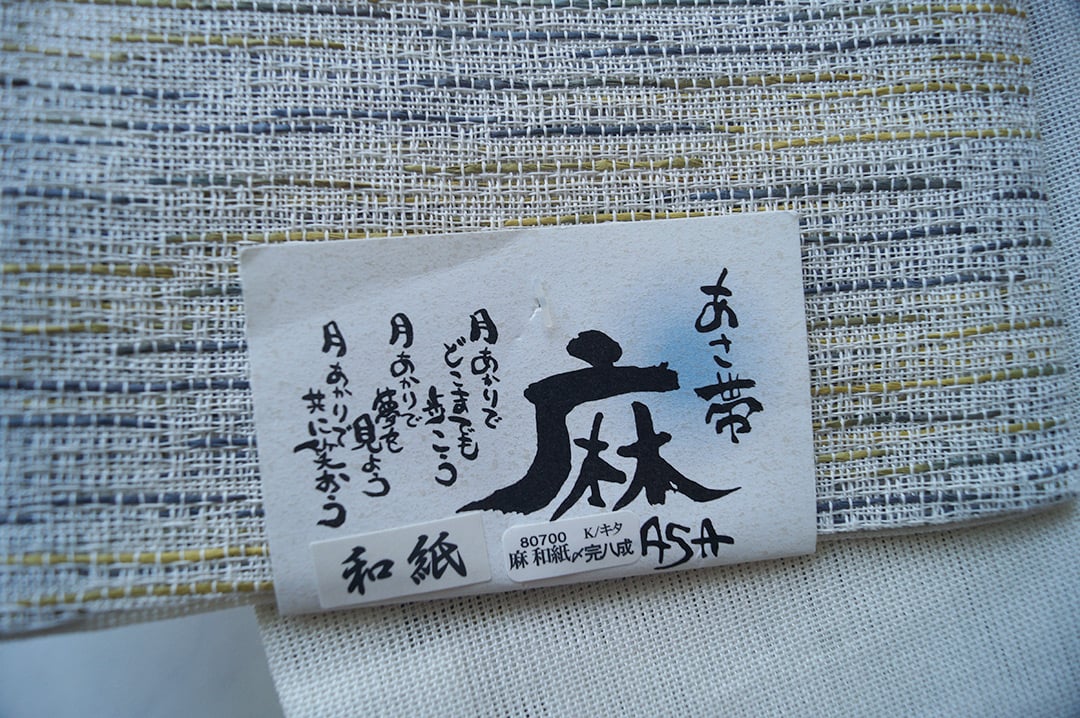 あさ帯
麻
ASA
月あかりで
どこまでも
歩こう
月あかりで
夢を
見よう
月あかりで
共に笑おう
和紙
80700 K/キタ
麻 和紙〆完八成